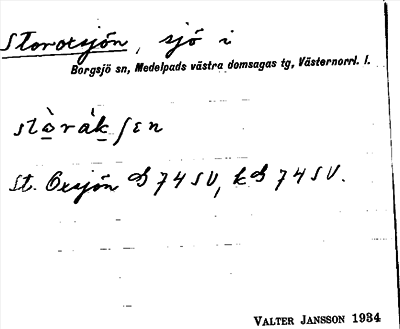 Storoxsjön, sjö i
Borgsjö sn, Medelpads västra domsagas tg, Västernorrl. l.
stòràkʃɛn
St. Oxsjön 74 SV, 74 SV.
VALTER JANSSON 1934